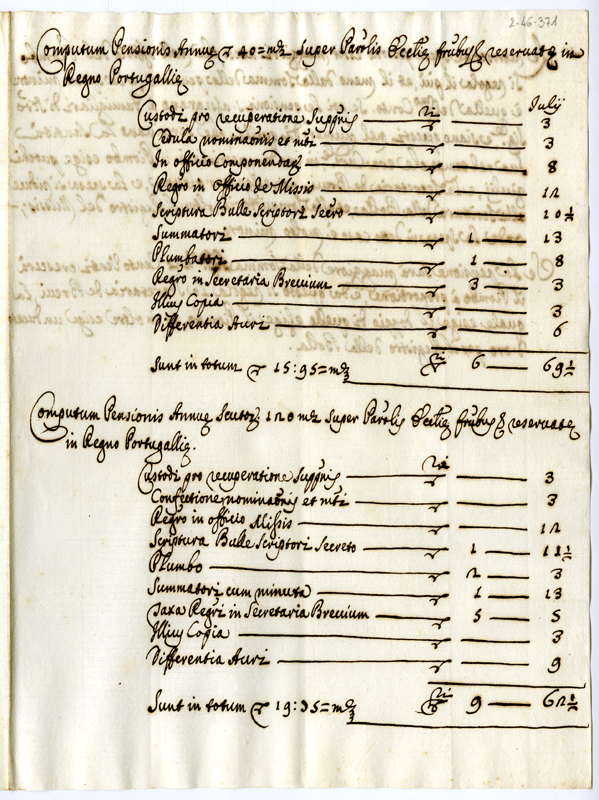 2-46-371
Computum Pensionis Annuę ▽ 40 = mtẽ super Parõlis Ecclię frũbus reservatę in
Regno Portugallię
Julij
Custodi pro recuperatione Suppnis 3
Cedula nominationis et mti 3
In officio Componendaȝ 8
Regrõ in officio de Missis 12
Scriptura Bulle Scriptori Secrõ 10 1/2
Summatori 1 13
Plumbatori 1 8
Regrõ in Secretaria Brevium 3 3
Illius Copia 3
Differentia Auri 6
Sunt in totum ▽ 15:95 = mtẽ 6 69 1/2
Computum Pensionis Annuę Scutoȝ 120 mtẽ super Parõlis Ecclię frũbus reservatę
in Regno Portugallię.
Custodi pro recuperatione Suppnis 3
Confectione nominationis et mti 3
Regrõ in officio Missis 12
Scriptura Bulle Scriptori Secreto 1 11 1/2
Plumbo 2 3
Summatori cum minuta 1 13
Taxa Regri in Secretaria Brevium 5 5
Illius Copia 3
Differentia Auri 9
Sunt in totum ▽ 19:35 = mtẽ 9 62 1/2